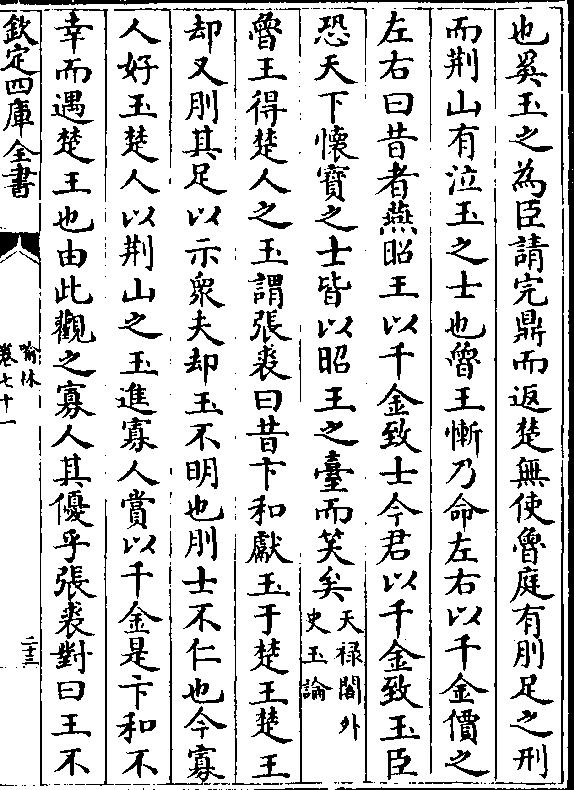 也奚玉之為臣請完鼎而返楚無使魯庭有刖足之刑
而荆山有泣玉之士也魯王慚乃命左右以千金價之
左右曰昔者燕昭王以千金致士今君以千金致玉臣
恐天下懷寶之士皆以昭王之臺而笑矣天祿閣外史玉論
魯王得楚人之玉謂張裘曰昔卞和獻玉于楚王楚王
却又刖其足以示衆夫却玉不明也刖士不仁也今寡
人好玉楚人以荆山之玉進寡人賞以千金是卞和不
幸而遇楚王也由此觀之寡人其優乎張裘對曰王不
欽定四庫全書
喻林
卷七十一
二三